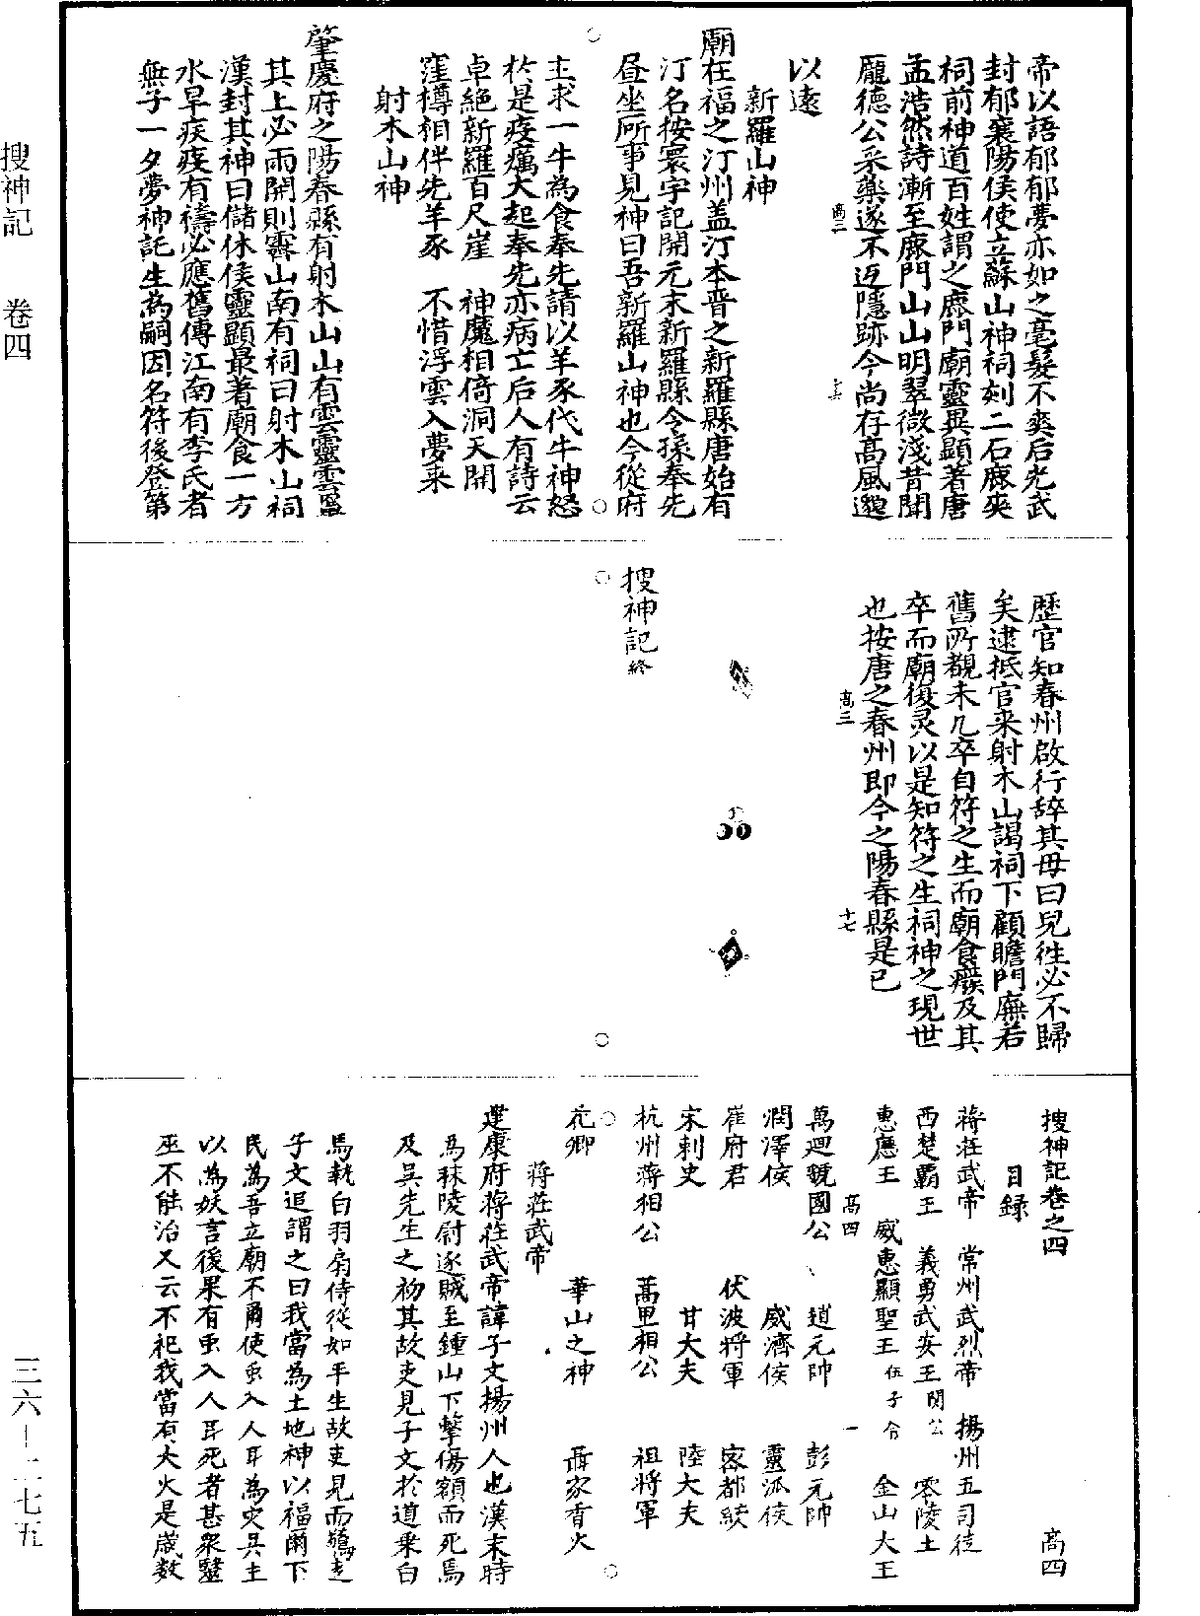 搜神記　卷四
帝以語郁郁夢亦如之毫髮不爽后光武
封郁襄陽侯使立蘇山神祠刻二石鹿夾
祠前神道百姓謂之鹿門廟靈異顯著唐
孟浩然詩漸至鹿門山山明翠微淺昔聞
龐德公采藥遂不返隱跡今尚存高風邈
高三
十六
以遠
新羅山神
廟在福之汀州盖汀本晉之新羅縣唐始有
汀名按寰宇記開元末新羅縣令孫奉先
昼坐所事見神曰吾新羅山神也今從府
主求一牛為食奉先請以羊豕代牛神怒
於是疫癘大起奉先亦病亡后人有詩云
卓絶新羅百尺崖　神魔相倚洞天開
窪樽相伴先羊豕　不惜浮雲入夢來
射木山神
肇慶府之陽春縣有射木山山有雲靈雲區
其上必雨開則霽山南有祠曰射木山祠
漢封其神曰儲休侯靈顯最著廟食一方
水旱疾疫有禱必應舊傳江南有李氏者
無子一夕夢神託生為嗣因名符後登第
歷官知春州啟行辞其母曰兒徃必不歸
矣逮抵官来射木山謁祠下顧瞻門廡若
舊所覩未几卒自符之生而廟食癈及其
卒而廟後灵以是知符之生祠神之現世
也按唐之春州即今之陽春縣是已
高三
十七
搜神記終
搜神記卷之四　高四
目録
蒋莊武帝　常州武烈帝　揚州五司徒
西楚霸王　義勇武安王関公　零陵土
惠應王　威惠顯聖王伍子胥　金山大王
高四
一
萬廻虢國公　趙元帥　彭元帥
潤澤侯　威濟侯　靈派侯
崔府君　伏波將軍　宻都統
宋刺史　甘大夫　陸大夫
杭州蒋相公　萬里相公　祖将軍
花卿　華山之神　聶家香火
蒋莊武帝
建康府蒋莊武帝諱子文揚州人也漢末時
為秣陵尉逐賊至鍾山下擊傷額而死焉
及吳先生之初其故吏見子文於道乗白
馬執白羽扇侍從如平生故吏見而驚走
子文追謂之曰我當為土地神以福爾下
民為吾立廟不爾使虫入人耳為灾吳主
以為妖言後果有虫入人耳死者甚衆毉
巫不能治又云不祀我當有大火是歲数
三六－二七五